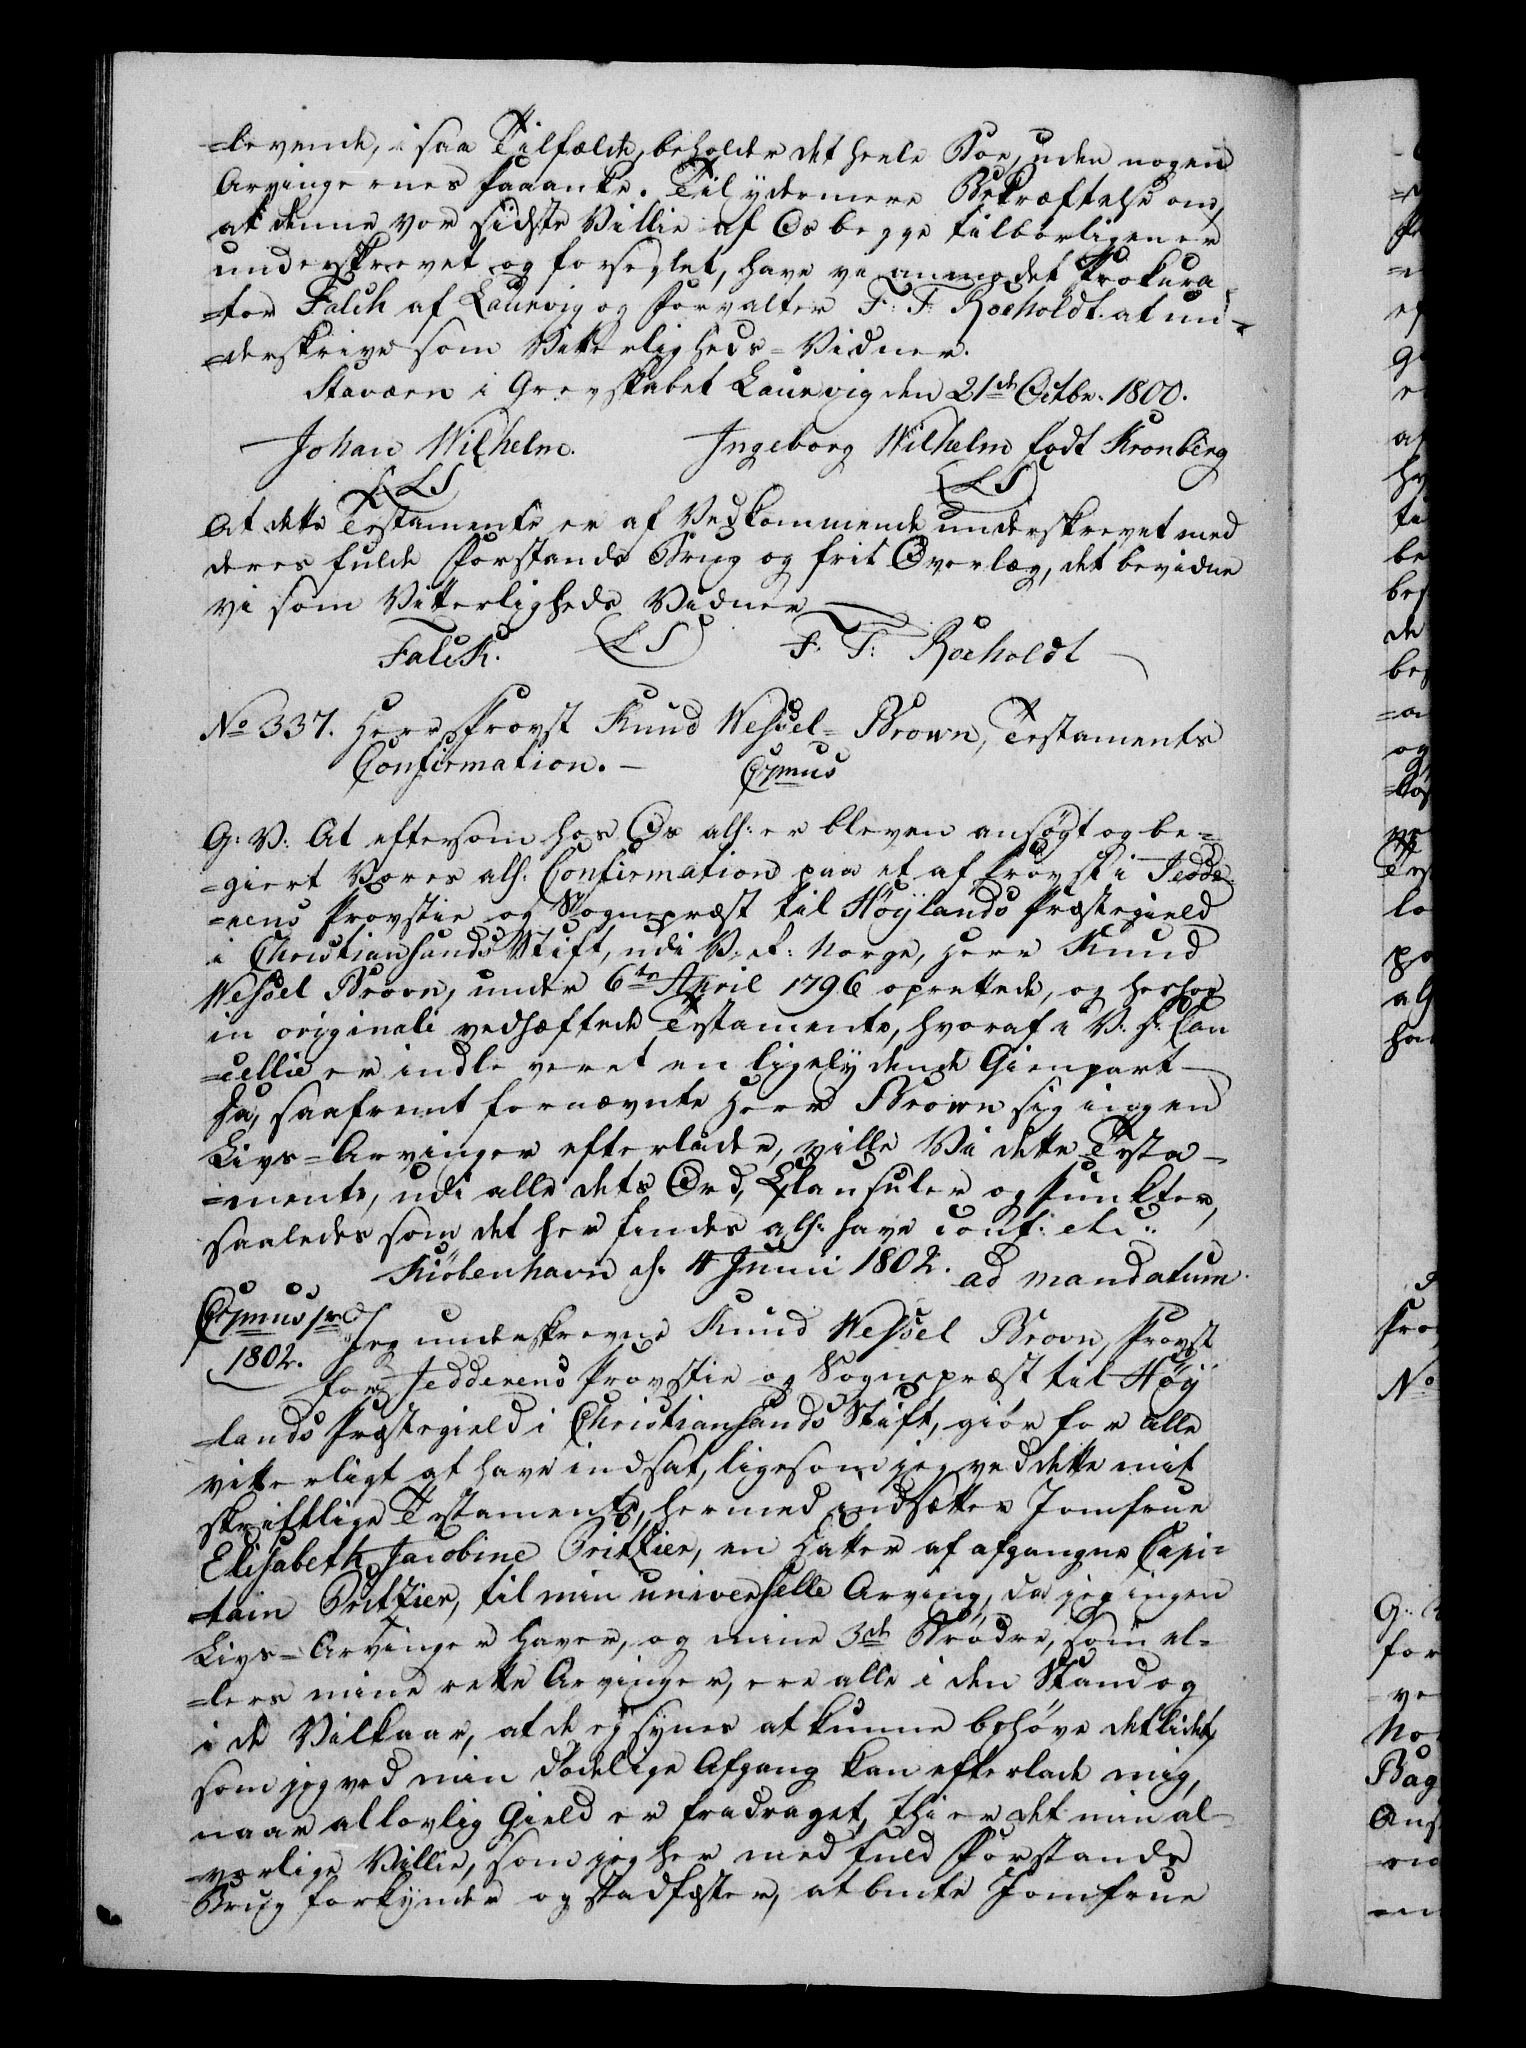 =levende, i saa Tilfælde, beholder det heele Boe, uden nogen
Arvingernes Paaanke. Til ydermere Bekræftelse om,
at denne vor sidste Villie af Os begge tilbørligen er
underskrevet og forseglet, have vi anmodet Prokura-
=tor Falck af Laurvig og Forvalter F: F: Roeholdt at un-
=derskrive som Vitterligheds=Vidner.
Staværn i Grevskabet Laurvig den 21de Octbr. 1800.
Johan Wilhelm. Ingeborg Wilhelm født Kronberg
(LS) (LS)
At dette Testamente er af Vedkommende underskrevet med
deres fulde Forstands Brug og frit Overlæg, det bevidne
vi som Vitterligheds Vidner
Falck. (LS) F. F: Roeholdt
No 337. Herr Provst Knud Wessel=Brown, Testaments
Confirmation. —
G: V: At eftersom hos Os all: er bleven ansøgt og be-
=giert Vores all. Confirmation paa et af Provst i Jedde-
=rens Provstie og Sognepræst til Höylands Præstegield
i Christiansands Stift, udi V: R: Norge, Herr Knud
Wessel Brown, under 6te April 1796 oprettede, og herhos
in originali vedhæftede Testamente, hvoraf i V. D. Can
=cellie er indleveret en ligelydende Gienpart
Da, saafremt fornævnte Herr Brown sig ingen
Livs=Arvinger efterlader, ville Vi dette Testa-
=mente, udi alle dets Ord, Clausuler og Punkter,
saaledes som det her findes all: have conf: etc:
Kiöbenhavn d. 4 Junii 1802. ad mandatum.
1802. Jeg underskrevne Knud Wessel Brown, Provst
for Jedderens Provstie og Sognepræst til Höy
=lands Præstegield i Christiansands Stift, giör for alle
vitterligt at have indsat, ligesom jeg ved dette mit
skriftlige Testamente, hermed indsætter Jomfrue
Elisabeth Jacobine Pritzier, en Datter af afgangne Capi=
=tain Pritzier, til min universelle Arving, da jeg ingen
Livs=Arvinger haver, og mine 3de Brødre, som el=
=lers mine rette Arvinger, ere alle i den Stand og
i de Vilkaar, at de ej synes at kunne behöve det lidet,
som jeg ved min dødelige Afgang kan efterlade mig,
naar al lovlig Gield er fradraget, thi er det min al-
=vorlige Villie, som jeg her med fuld Forstands
Brug forkynder og stadfæster, at bemte Jomfrue